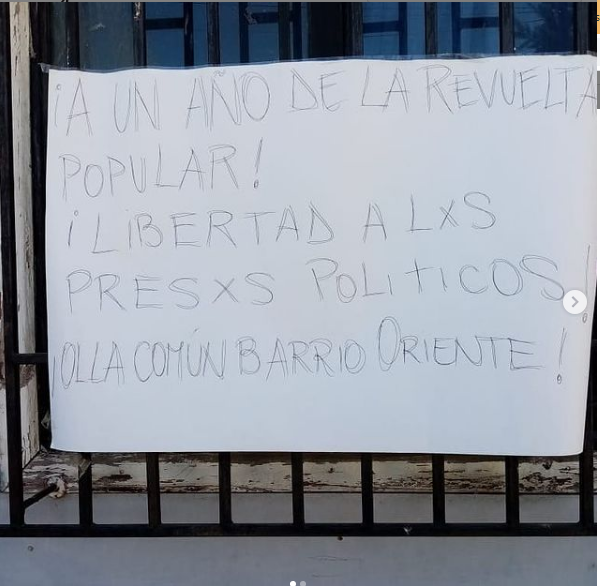 ¡A UN AÑO DE LA REVUELTA
POPULAR!
¡LIBERTAD A LXS
PRESXS POLITICOS!
¡OLLA COMÚN BARRIO ORIENTE!